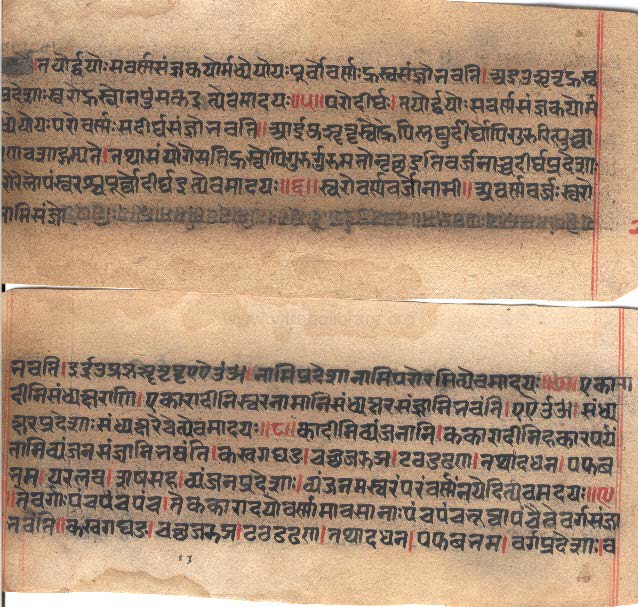 तयोर्द्वयोः सवर्णसंज्ञकयोर्मध्ये योयः पूर्वो वर्णः स ह्रस्वसंज्ञो भवति। अ इ उ ऋ ऌ ह्रस्व
प्रदेशाः स्वरो ह्रस्वो नपुंसक इत्येवमादयः॥५॥ परो दीर्घः। तयोर्द्वयोः सवर्णसंज्ञकयोर्म
ध्ये योयः परो वर्णः स दीर्घसंज्ञो भवति॥ आ ई ऊ ॠ ॡ ह्रस्वो लघुर्दीर्घो गुरुरित्यु
तथा संयोगे सति ह्रस्वोपि गुरुर्गुरुमतो नृच्छ इति वर्जनाच्च दीर्घप्रदेशाः
रोरे लोपं स्वरश्च पूर्वो दीर्घ इत्येवमादयः॥६॥ स्वरोवर्णवर्जो नामी॥ अवर्णवर्जः स्वरो
नामिसंज्ञो
भवति। इ ई उ ऊ ऋ ॠ ऌ ॡ ए ऐ ओ औ। नामिप्रदेशा नामिपरोरमित्येवमादयः॥७॥ एकारा
दीनि संध्यक्षराणि। एकारादीनि स्वरनामानि संध्यक्षरसंज्ञानि भवंति। ए ऐ ओ औ। संध्य
क्षरप्रदेशाः संध्यक्षरे चेत्येवमादयः॥८॥ कादीनि व्यंजनानि। ककारादीनि हकारपर्यं
तानि व्यंजनसंज्ञानि भवंति। क ख ग घ ङ। च छ ज झ ञ। ट ठ ड ढ ण। त थ द ध न। प फ ब
भ म। य र ल व। श ष स ह। व्यंजनप्रदेशाः। व्यंजनमस्वरं परं वर्णं नयेदित्येवमादयः॥९
॥ते वर्गाः पंच पंच पंच। ते ककारादयो वर्णा मावसानाः पंच पंच भूत्वा पंचैव ते वर्गसंज्ञा
भवंति॥ क ख ग घ ङ। च छ ज झ ञ। ट ठ ड ढ ण। त थ द ध न। प फ ब भ म। वर्गप्रदेशाः। व